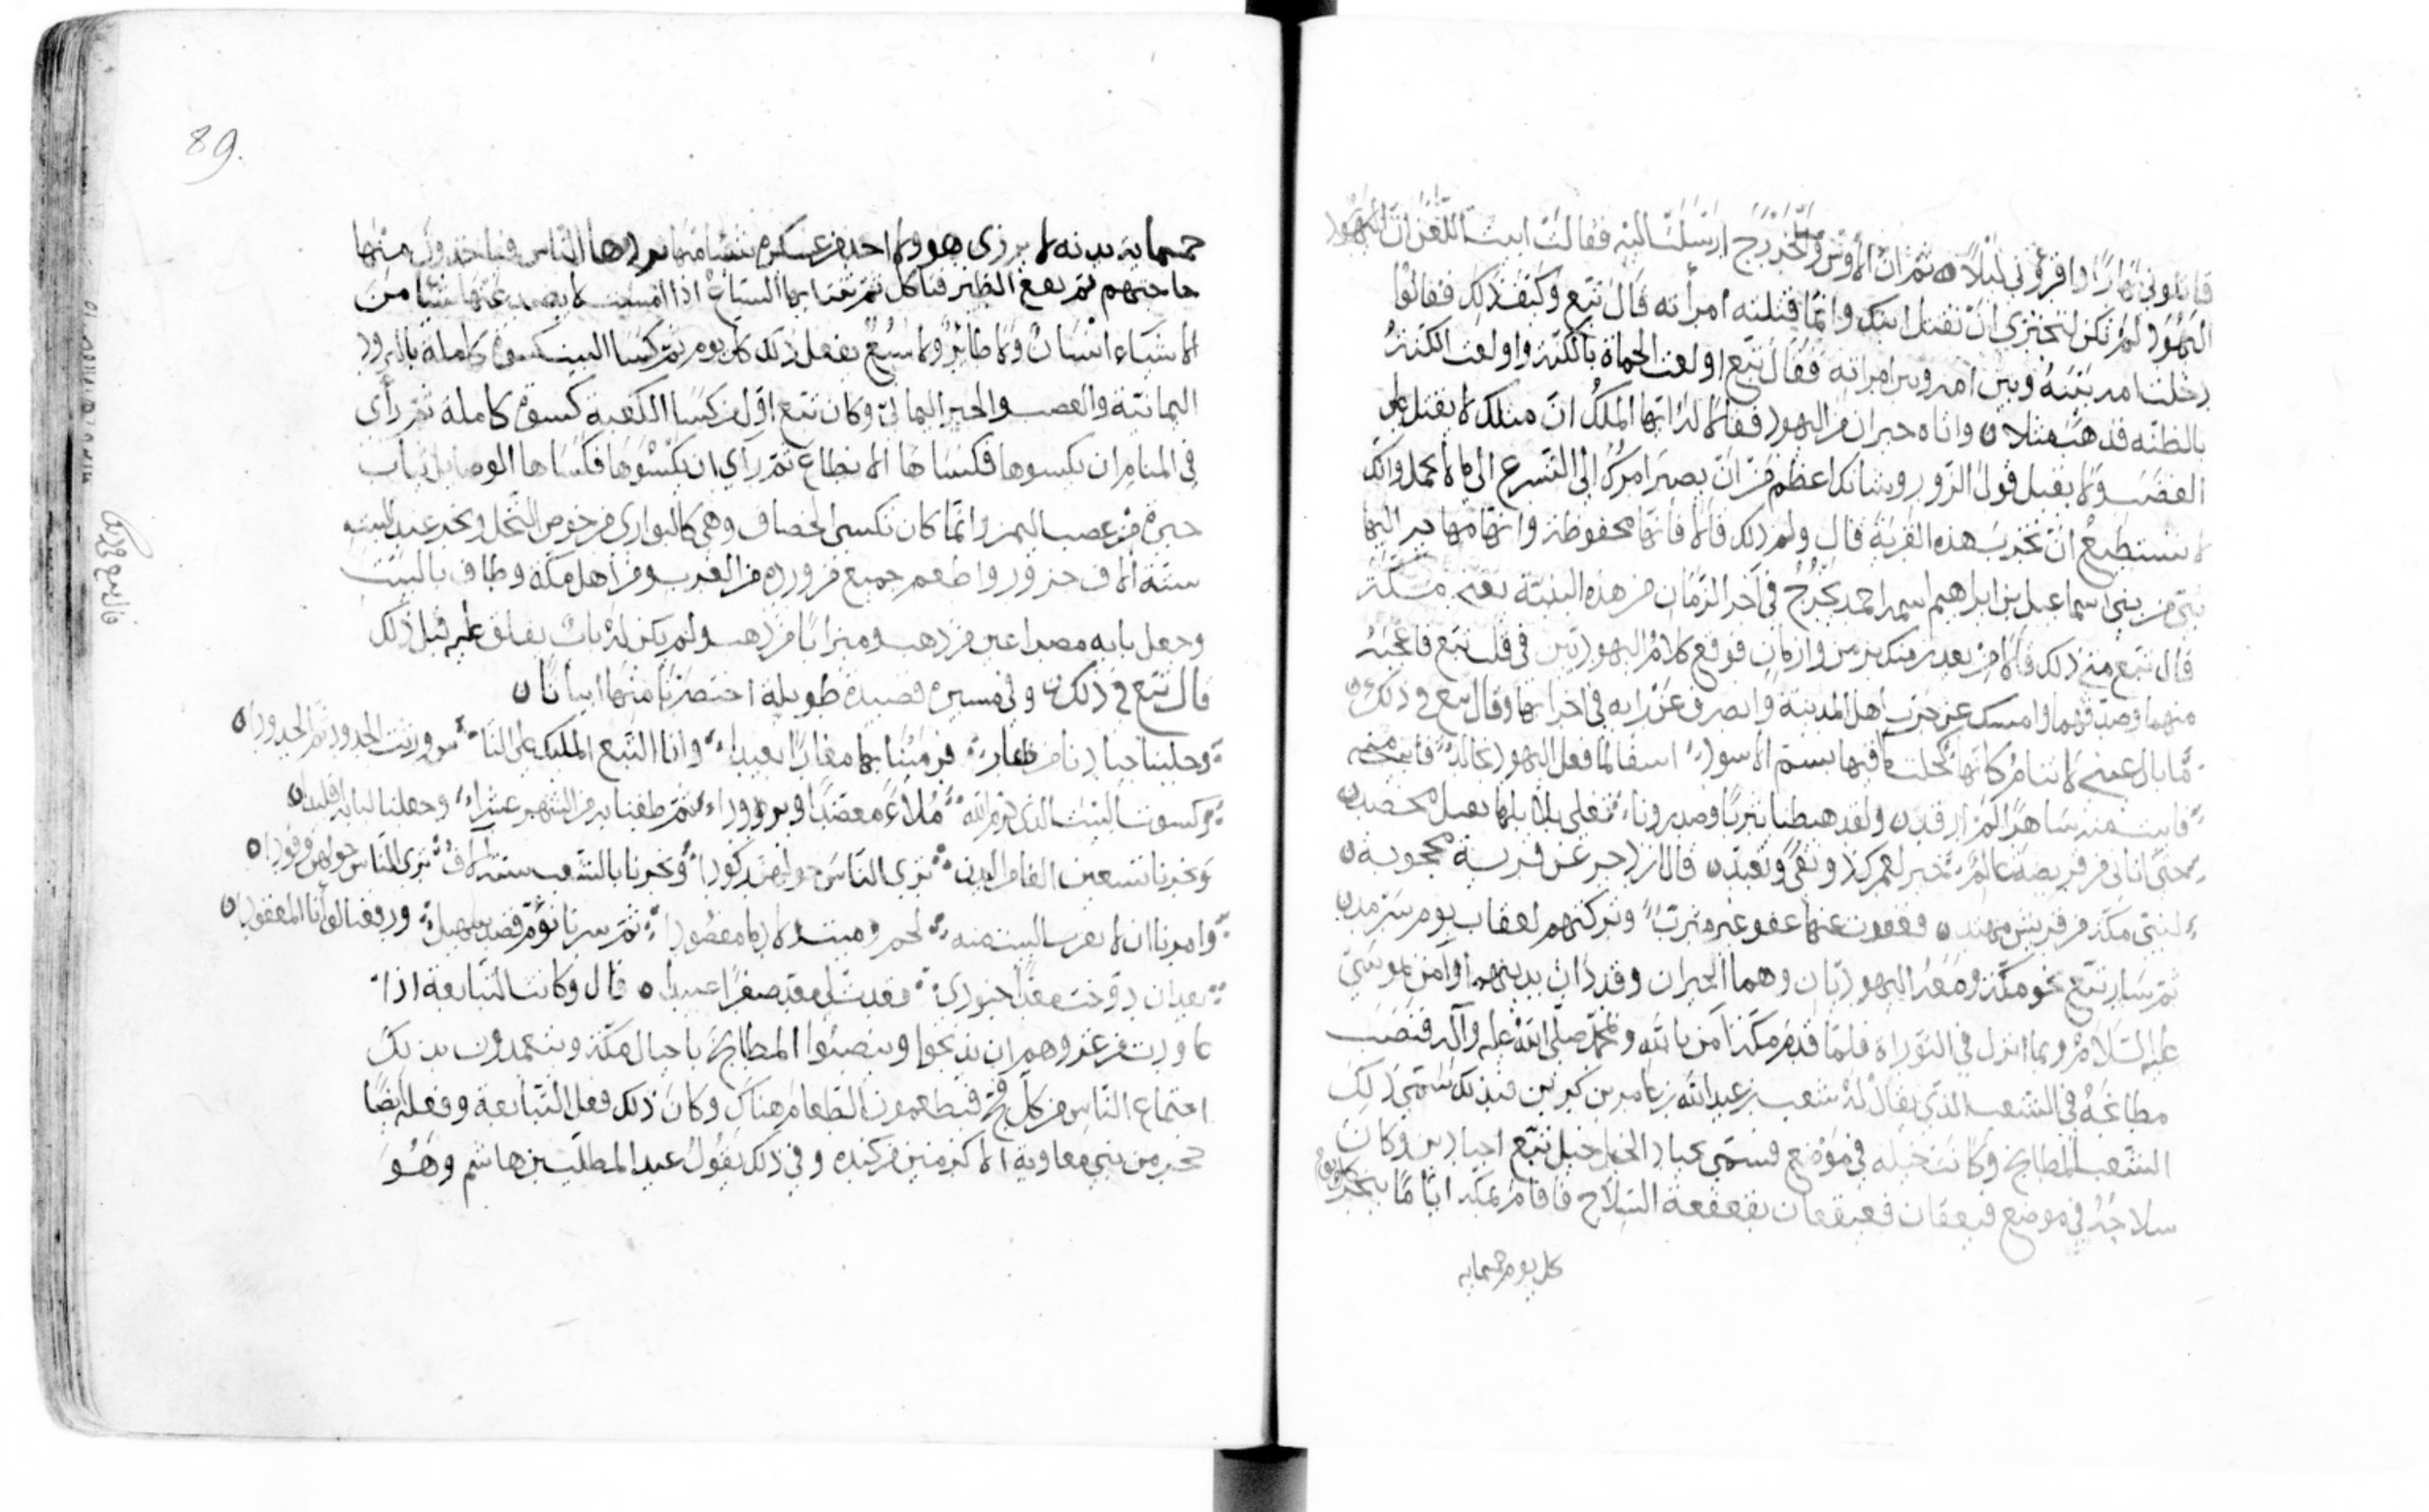 قاتلوني نهارًا واقروني ليلًا ه ثم ان الأوس والخزرج ارسلت اليه فقالت ابيت اللعن ان اليهود
اليهود لم تكن لتجتزي ان تقتل ابنك وانما قتلته امرأته قال تبع وكيف ذلك فقالوا
دخلت امه بينه وبين امراته فقال تبع اولعت الحماة بالكنه واولعت الكنه
بالظنه قد هبت مثلا ن واتاه حبران من اليهود فقالا له ايها الملك ان مثلك لا يقتل على
الغضب ولا يقبل قول الزور وشانك اعظم من ان يصير امرك الى التسرع الى ما لا يجمل وانك
لا تستطيع ان تخرب هذه القرية قال ولم ذلك قالا فانها محفوظة وانها مهاجر اليها
نبي من بني اسماعيل بن ابراهيم اسمه احمد يخرج في آخر الزمان من هذه البنية يعني مكة
قال تبع متى ذلك قالا من بعد زمنك بزمن وازمان فوقع كلام اليهوديين في قلب تبع فاعجبه
منهما وصدقهما وامسك عن حرب اهل المدينة وانصرف عن رايه في اخرابها وقال تبع في ذلك ن
ما بال عيني لا تنام كانها كحلت مآقيها بسم الاسود اسفا لما فعل اليهود بخالد
فابيت منه ساهرا لم ارقد ن ولقد هبطنا يثربا وصدورنا تغلي بلابلها بقتل محصد ن
حتى اتاني من قريضة عالم حبر لعمرك ذو تقى وتعبد ن قال ازدجر عن قرية محجوبة ن
لنبي مكة من قريش مهتد ن فعفوت عنها عفو غير مثرب وتركتهم لعقاب يوم سرمد ن
ثم سار تبع نحو مكة ومعه اليهوديان وهما الحبران وقد دان بدينهما وآمن بموسى
عليه السلام وبما انزل في التوراة فلما قدم مكة آمن بالله وبمحمد صلى الله عليه وآله فنصب
مطابخه في الشعب الذي يقال له شعب بن عبد الله بن عامر بن كريز فبذلك سمي ذلك
الشعب المطابخ وكانت خيله في موضع فسمي بجياد الخيل خيل تبع اجيادين وكان
سلاحه في موضع قعيقعان بقعقعة السلاح فاقام بمكة اياما ينحر في
كل يوم خمسمايه
89.
خمسمايه بدنه لا يرزى هو ولا احد من عسكره شيئا منها يردها الناس فياخذون منها
حاجتهم ثم يقع الطير فتاكل ثم تنتابها السباع اذا امست لا يصد عنها شيئا من
الاشياء انسان ولا طائر ولا سبع يفعل ذلك كل يوم ثم كسا البيت كسوة كاملة بالبرود
اليمانية والعصب والحبر اليماني وكان تبع اول من كسا الكعبة كسوة كاملة ثم رأى
في المنام ان يكسوها فكساها الانطاع ثم رآى ان يكسوها فكساها الوصايل ثياب
حبرة من عصب اليمن وانما كان تكسى الخصاف وهي كالبواري من خوص النخل ونحر عند البيت
ستة الاف جزور واطعم جميع من ورده من العرب ومن اهل مكة وطاف بالبيت
وجعل بابه مصراعين من ذهب وميزابا من ذهب ولم يكن له باب يغلق عليه قبل ذلك
قال تبع في ذلك ن وفي مسيره قصيدة طويلة اختصرنا منها ابياتا ن
وجلبنا جيادنا من ظفار فرمينا بها مغارا بعيدا وانا التبع المليك على الناس ورثت الجدود ثم الجدودا ن
وكسوت البيت الذي حرم الله ملاء معضدا وبرودا ثم طفنا به من الشهر عشرا وجعلنا لبابه اقليدا ن
ونحرنا تسعين الفا من البدن ترى الناس حولهن ركودا ونحرنا بالشعب ستة آلاف ترى الناس حولهن وفودا ن
وامرنا ان لا يقرب البيت منه لحم وميتة لا دما مفصودا ثم سرنا نؤم قصد سهيل ورفعنا لواءنا المعقودا ن
قال وكانت التبابعة اذا
عاودت من غزوهم ان يذبحوا وينصبوا المطابخ باجبال مكة ويتعمدون بذلك
اجتماع الناس من كل فج فيطعمون الطعام هناك وكان ذلك فعل التبابعة وفعله ايضا
حجر من بني معاوية الاكرمين من كنده وفي ذلك يقول عبد المطلب بن هاشم وهو